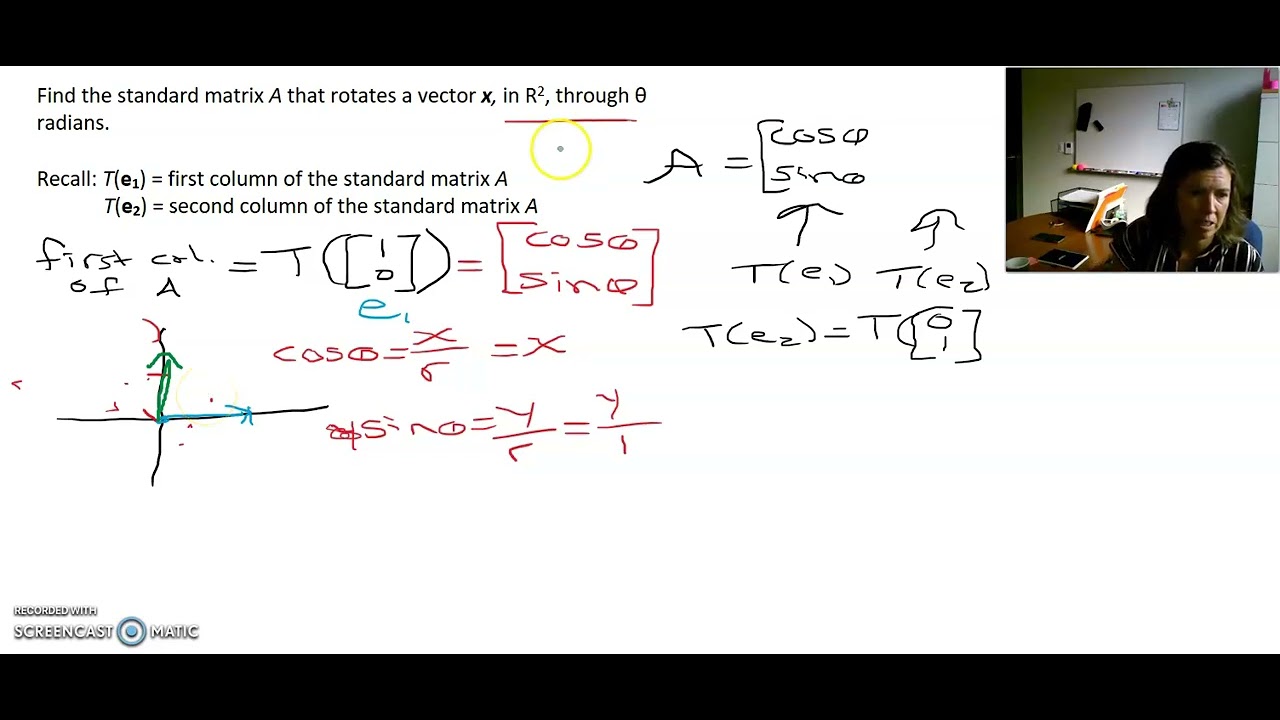 Find the standard matrix A that rotates a vector x, in R², through θ
radians.
Recall: T(e₁) = first column of the standard matrix A
T(e₂) = second column of the standard matrix A
first col.
of A
= T([1
0]) = [cosθ
sinθ]
e₁
cosθ = x/r = x
sinθ = y/r = y/1
A = [cosθ
sinθ
T(e₁) T(e₂)
T(e₂) = T([0
1]
RECORDED WITH
SCREENCAST MATIC